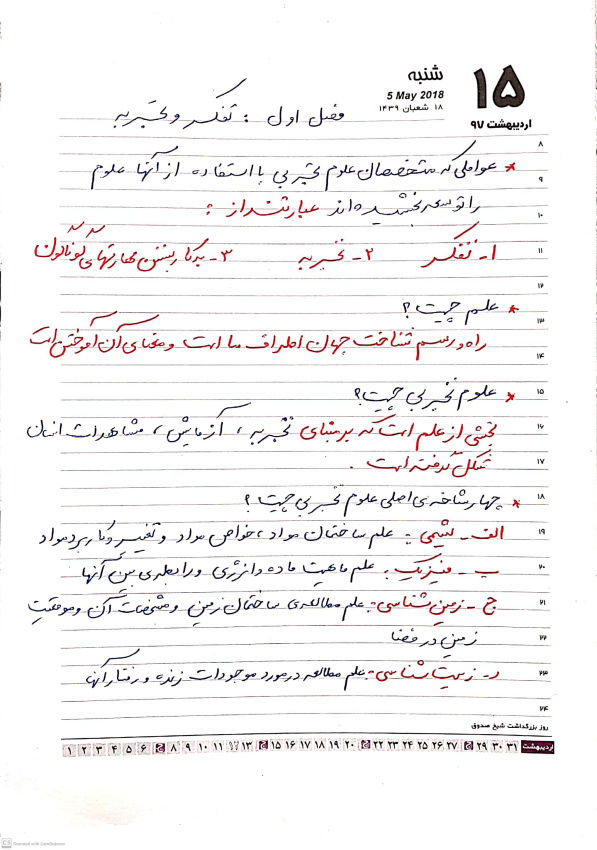 شنبه
۱۵
5 May 2018
۱۸ شعبان ۱۴۳۹
اردیبهشت ۹۷
فصل اول : تفکر و تجربه
۸
* عواملی که متخصصان علوم تجربی با استفاده از آنها علوم
۹
را توسعه بخشیده اند عبارتند از :
۱۰
۱- تفکر ۲- تجربه ۳- به کار بستن مهارتهای گوناگون
۱۱
۱۲
* علم چیست؟
۱۳
راه و رسم شناخت جهان اطراف ما است و معنای آن آموختن است
۱۴
* علوم تجربی چیست؟
۱۵
بخشی از علم است که بر مبنای تجربه ، آزمایش ، مشاهدات انسان
۱۶
شکل گرفته است .
۱۷
* چهار شاخه ی اصلی علوم تجربی چیست؟
۱۸
الف - شیمی : علم ساختمان مواد ، خواص مواد و تغییر و کاربرد مواد
۱۹
ب - فیزیک : علم ماهیت ماده و انرژی و رابطه ی بین آنها
۲۰
ج - زمین شناسی : علم مطالعه ی ساختمان زمین و مشخصات آن و موقعیت
۲۱
زمین در فضا
۲۲
د - زیست شناسی : علم مطالعه در مورد موجودات زنده و رفتار آنها
۲۳
۲۴
روز بزرگداشت شیخ صدوق
اردیبهشت ۱ ۲ ۳ ۴ ۵ ۶ ۸ ۹ ۱۰ ۱۱ ۱۲ ۱۳ ۱۵ ۱۶ ۱۷ ۱۸ ۱۹ ۲۰ ۲۲ ۲۳ ۲۴ ۲۵ ۲۶ ۲۷ ۲۹ ۳۰ ۳۱
CS Scanned with CamScanner